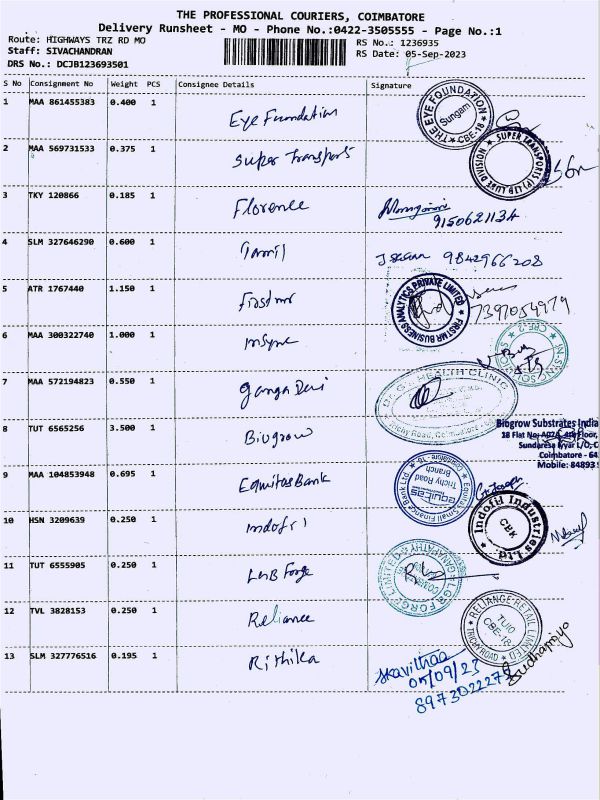 THE PROFESSIONAL COURIERS, COIMBATORE
Delivery Runsheet - MO - Phone No.:0422-3505555 - Page No.:1
Route: HIGHWAYS TRZ RD MO
RS No.: 1236935
Staff: SIVACHANDRAN
RS Date: 05-Sep-2023
DRS No.: DCJB123693501
S No Consignment No Weight PCS Consignee Details Signature
1 MAA 861455383 0.400 1 Eye Foundation
THE EYE FOUNDATION Sungam CBE-18
2 MAA 569731533 0.375 1 Super Transports
SUPER TRANSPORTS (P) LTD LUXE DIVISION
3 TKY 120866 0.185 1 Florence
4 SLM 327646290 0.600 1 Tamil
9842966208
5 ATR 1767440 1.150 1 Firstmr
FIRSTMR BUSINESS ANALYTICS PRIVATE LIMITED
7397054979
6 MAA 300322740 1.000 1 Insync
7 MAA 572194823 0.550 1 Ganga Devi
HEALTH CLINIC
Trichy Road, Coimbatore
8 TUT 6565256 3.500 1 Biogrow
Biogrow Substrates India
18 Flat No: 4th Floor,
Sundaresa Iyyar L/O, C
Coimbatore - 64
Mobile: 84893
9 MAA 104853948 0.695 1 Equitas Bank
Equitas Small Finance Bank Ltd. equitas Trichy Road Branch
10 HSN 3209639 0.250 1 Indofil
Indofil Industries CBE
11 TUT 6555905 0.250 1 LGB Forge
LGB FORGE LIMITED GANAPATHY
12 TVL 3828153 0.250 1 Reliance
RELIANCE RETAIL LIMITED TUIO CBE-18 TRICHY ROAD
13 SLM 327776516 0.195 1 Rithika
05/09/23